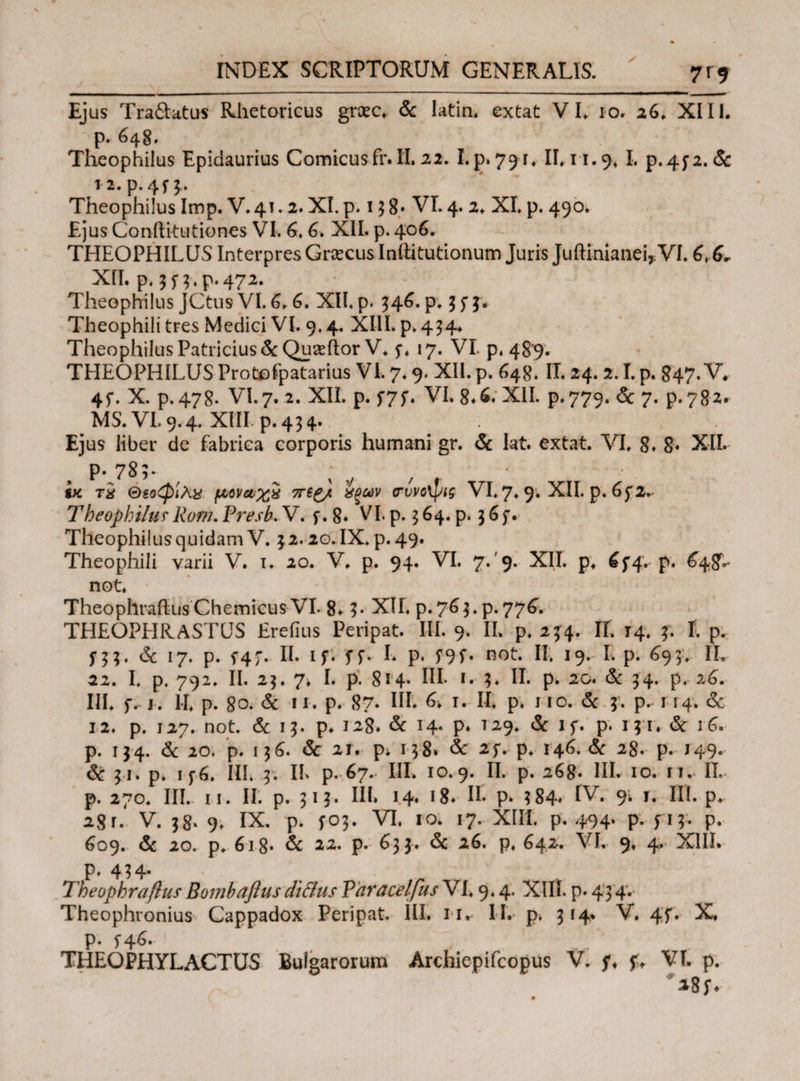 INDEX SCRIPTORUM GENERALIS. 719
Ejus Tractatus Rhetoricus græc. & latin. extat VI. 10. 26. XIII.
p. 648.
Theophilus Epidaurius Comicus fr. II. 22. I. p. 791. II. 11. 9. I. p. 452. &
12. p. 453.
Theophilus Imp. V. 41. 2. XI. p. 138. VI. 4. 2. XI. p. 490.
Ejus Constitutiones VI. 6. 6. XII. p. 406.
THEOPHILUS Interpres Græcus Institutionum Juris Justinianei, VI. 6. 6.
XII. p. 353. p. 472.
Theophilus JCtus VI. 6. 6. XII. p. 346. p. 353.
Theophili tres Medici VI. 9. 4. XIII. p. 434.
Theophilus Patricius & Quæstor V. 5. 17. VI. p. 489.
THEOPHILUS Protospatarius VI. 7. 9. XII. p. 648. II. 24. 2. I. p. 847. V.
45. X. p. 478. VI. 7. 2. XII. p. 575. VI. 8. 6. XII. p. 779. & 7. p. 782.
MS. VI. 9. 4. XIII p. 434.
Ejus liber de fabrica corporis humani gr. & lat. extat. VI. 8. 8. XII.
p. 785.
ἐκ τῦ Θεοφίλυ μοναχῦ περὶ ὔρων σύνοψις VI. 7. 9. XII. p. 652.
Theophilus Rom. Presb. V. 5. 8. VI. p. 364. p. 365.
Theophilus quidam V. 32. 20. IX. p. 49.
Theophili varii V. 1. 20. V. p. 94. VI. 7. 9. XII. p. 654. p. 648.
not.
Theophrastus Chemicus VI. 8. 3. XII. p. 763. p. 776.
THEOPHRASTUS Eresius Peripat. III. 9. II. p. 234. II. 14. 3. I. p.
533. & 17. p. 545. II. 15. 55. I. p. 595. not. II. 19. I. p. 693. II.
22. I. p. 792. II. 23. 7. I. p. 814. III. 1. 3. II. p. 20. & 34. p. 26.
III. 5. 1. II. p. 80. & 11. p. 87. III. 6. 1. II. p. 110. & 3. p. 114. &
12. p. 127. not. & 13. p. 128. & 14. p. 129. & 15. p. 131. & 16.
p. 134. & 20. p. 136. & 21. p. 138. & 25. p. 146. & 28. p. 149.
& 31. p. 156. III. 3. II. p. 67. III. 10. 9. II. p. 268. III. 10. 11. II.
p. 270. III. 11. II. p. 313. III. 14. 18. II. p. 384. IV. 9. 1. III. p.
281. V. 38. 9. IX. p. 503. VI. 10. 17. XIII. p. 494. p. 513. p.
609. & 20. p. 618. & 22. p. 633. & 26. p. 642. VI. 9. 4. XIII.
p. 434.
Theophrastus Bombastus dictus Paracelsus VI. 9. 4. XIII. p. 434.
Theophronius Cappadox Peripat. III. 11. II. p. 314. V. 45. X.
p. 546.
THEOPHYLACTUS Bulgarorum Archiepiscopus V. 5. 5. VI. p.
285.